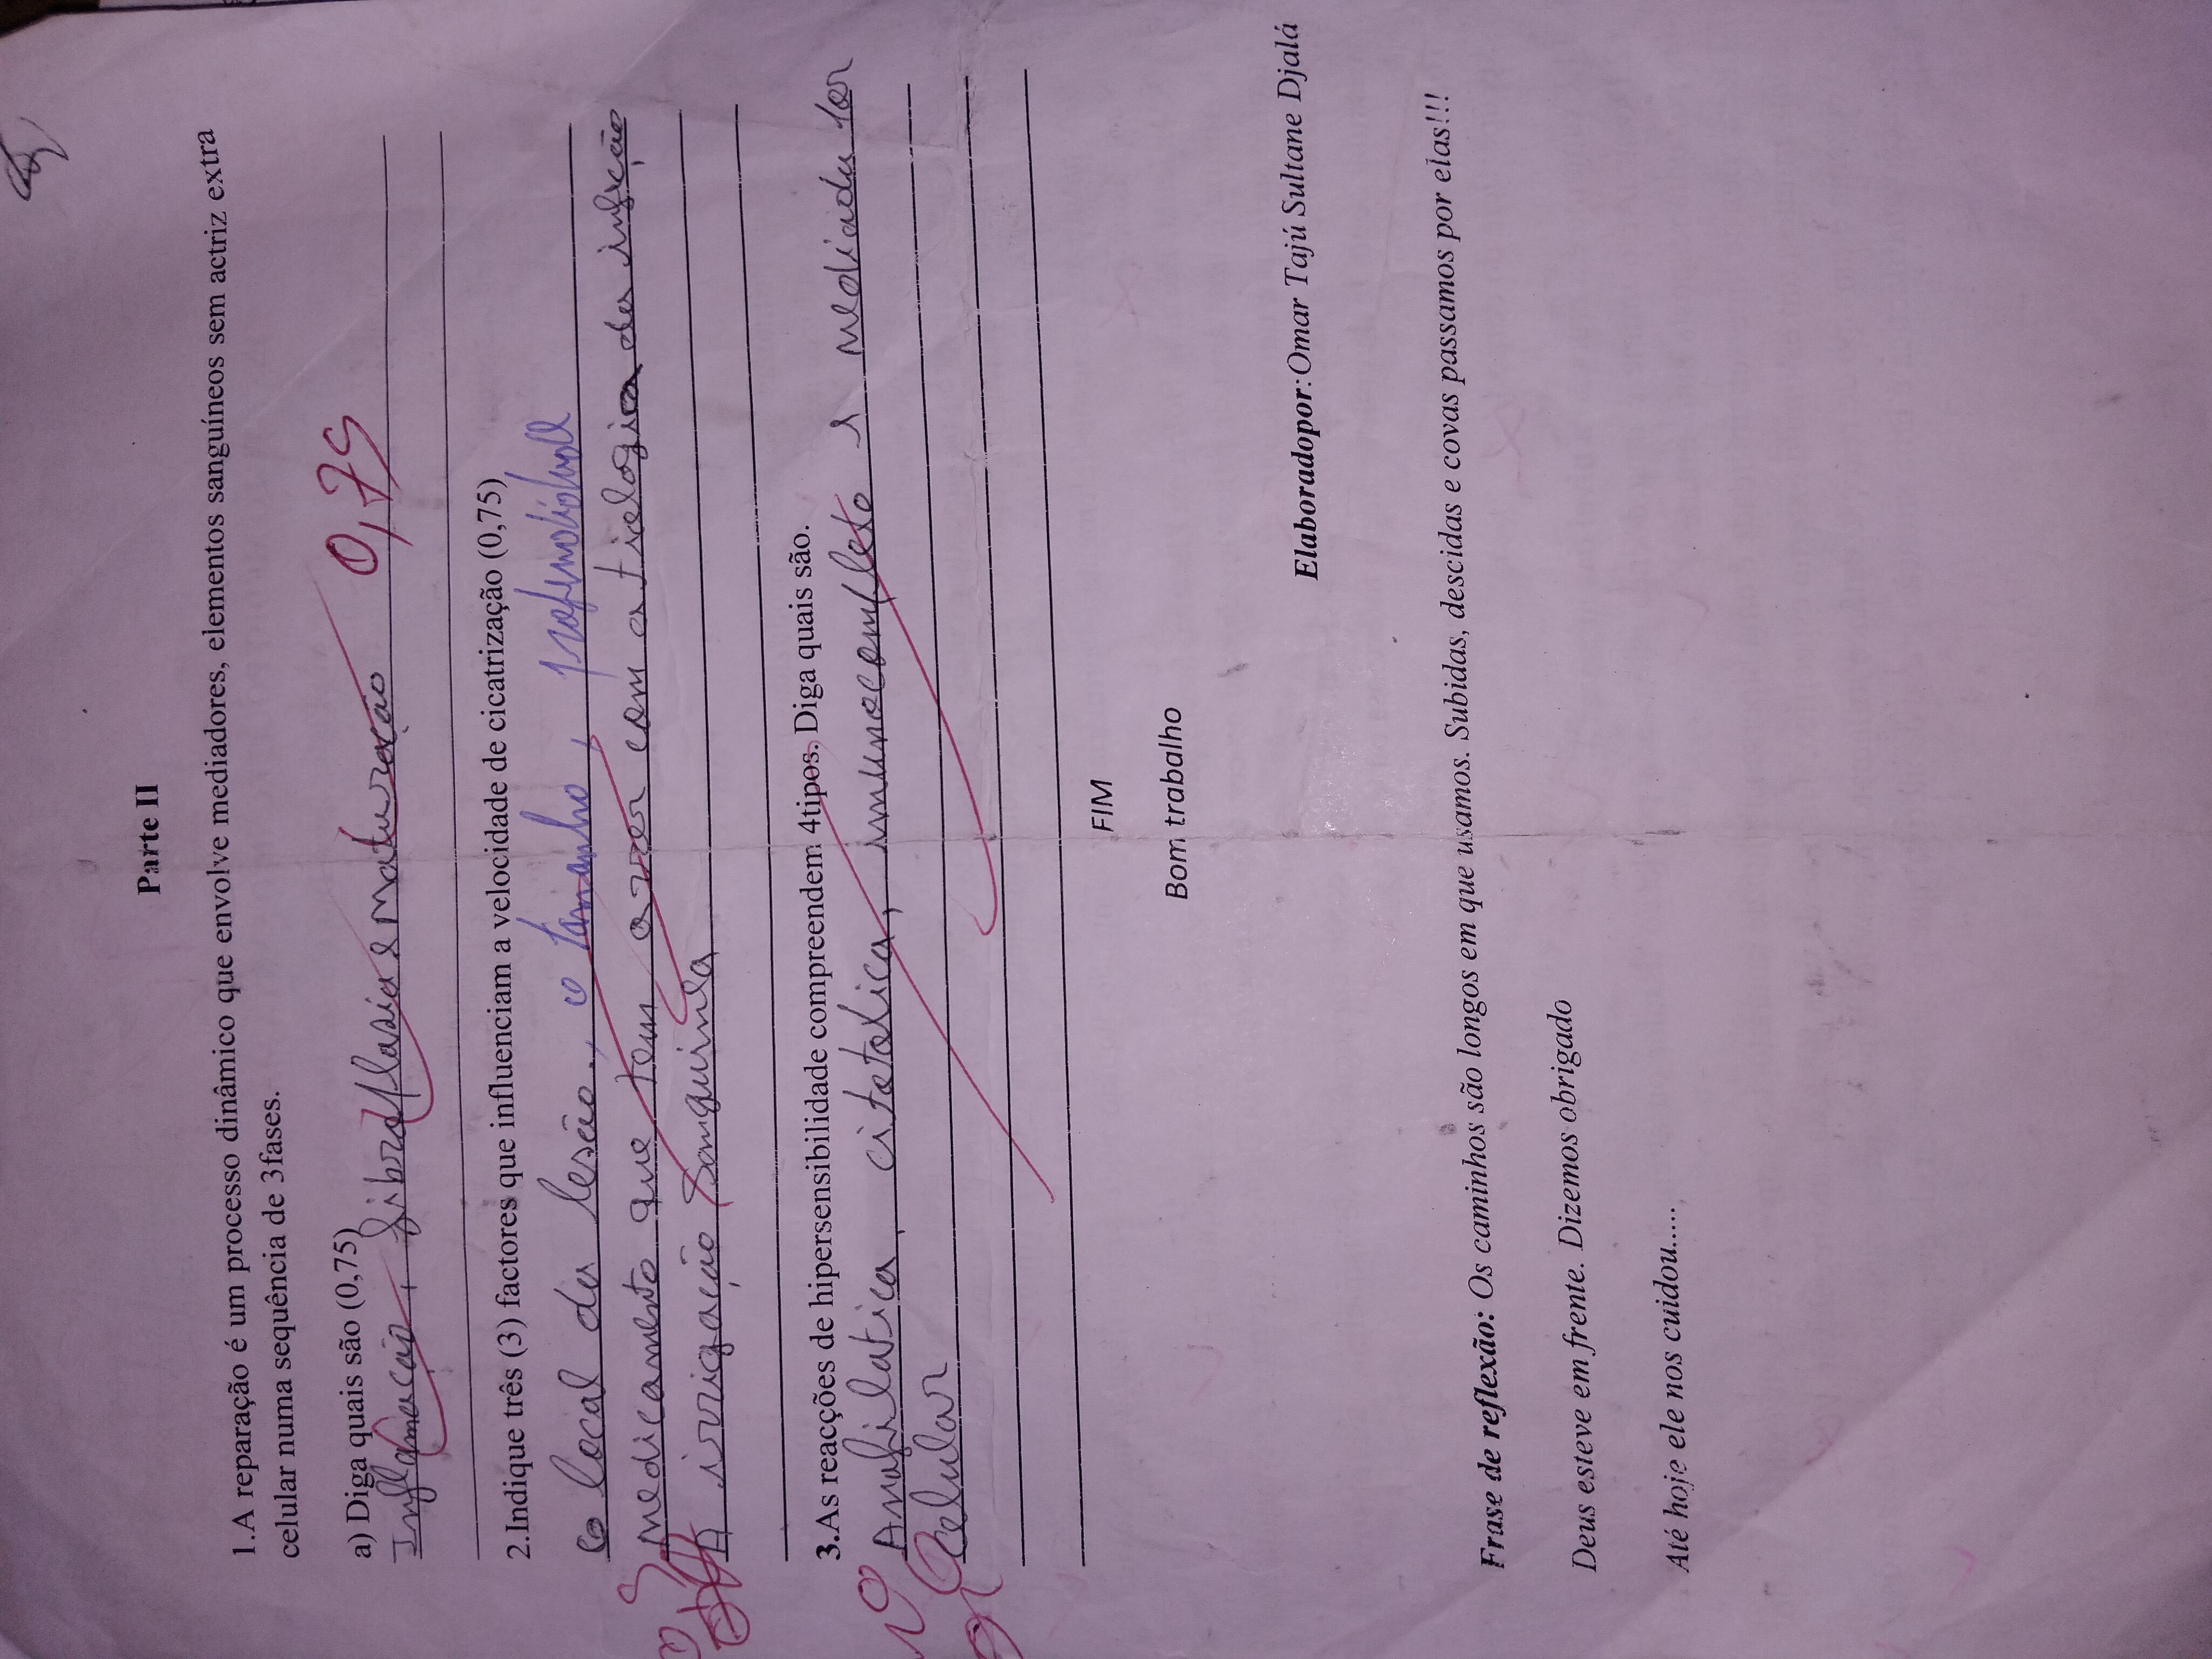 Parte II
1.A reparação é um processo dinâmico que envolve mediadores, elementos sanguíneos sem actriz extra
celular numa sequência de 3fases.
a) Diga quais são (0,75)
Inflamação, fibroplasia e Maturação 0,75
2.Indique três (3) factores que influenciam a velocidade de cicatrização (0,75)
O local da lesão., o tamanho, profundidade
Medicamento que tem a ver com a tiologica da infecção
A irrigação Sanguinea
3.As reacções de hipersensibilidade compreendem 4tipos. Diga quais são.
Anafilatica, citotoxica, imunocomplexo e Mediada por
celular
FIM
Bom trabalho
Elaboradopor:Omar Tajú Sultane Djalá
Frase de reflexão: Os caminhos são longos em que usamos. Subidas, descidas e covas passamos por elas!!!
Deus esteve em frente. Dizemos obrigado
Até hoje ele nos cuidou.....